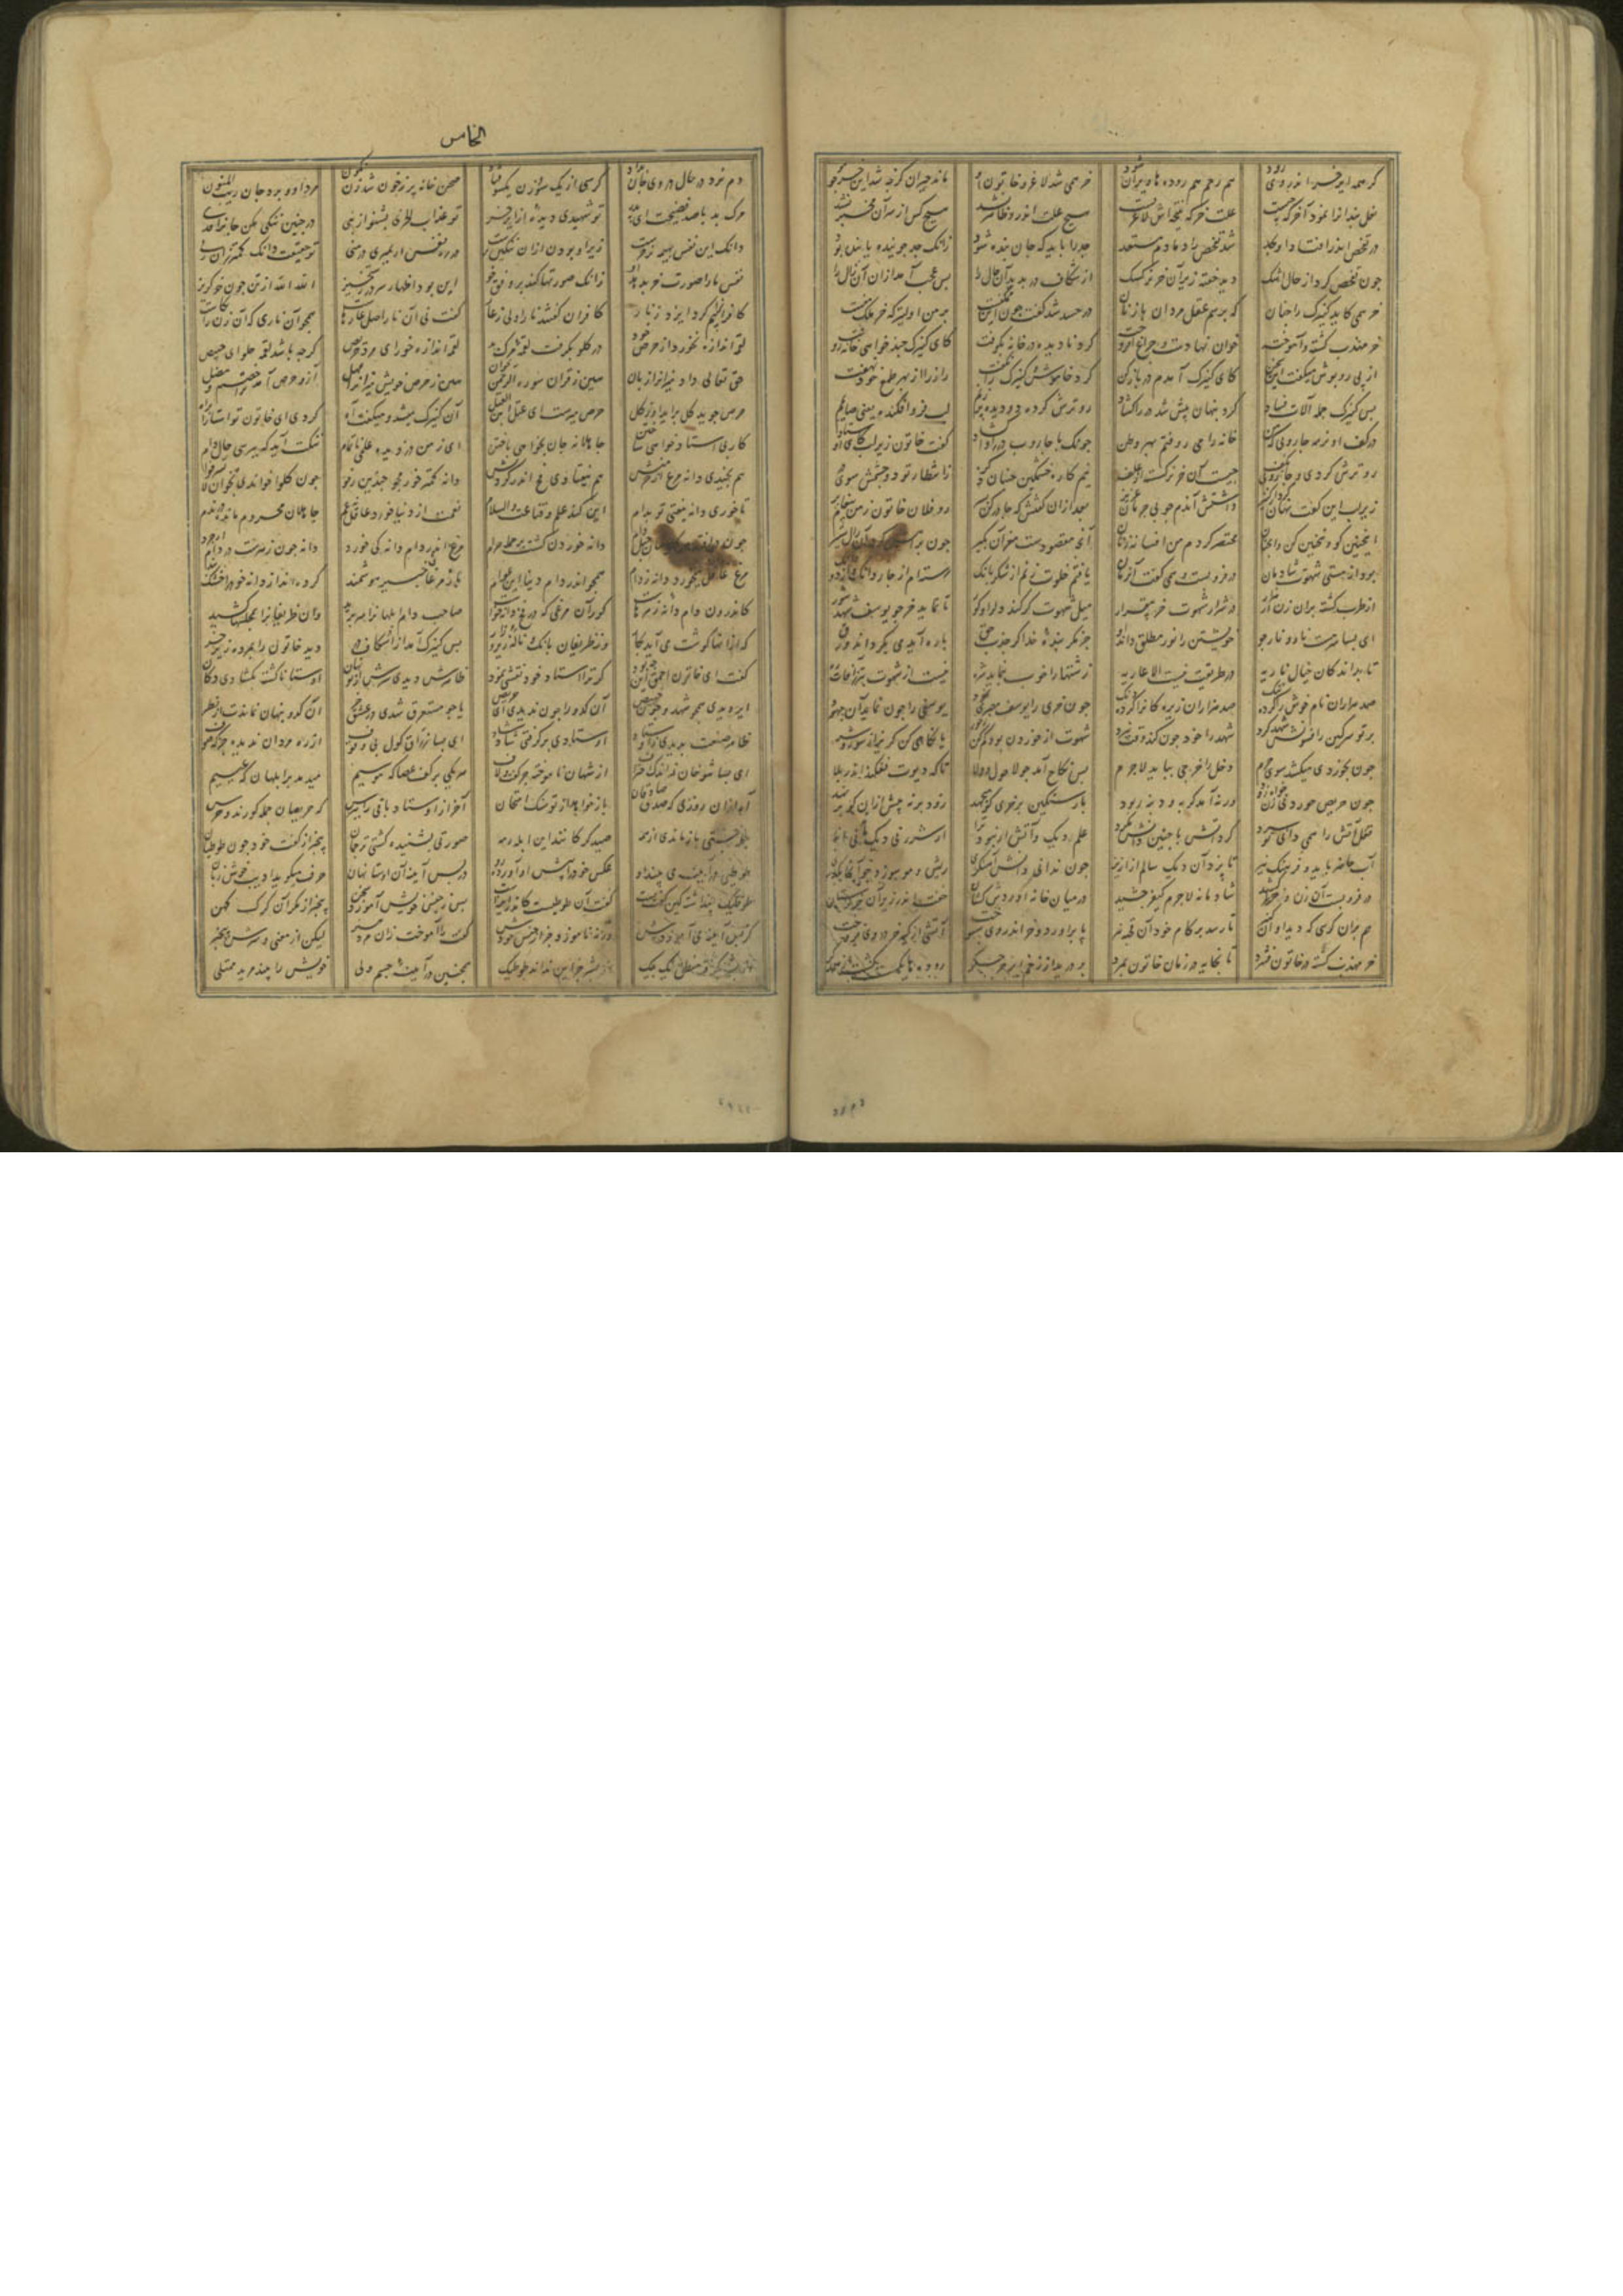 گر همه ایر خر اندر وی رود هم رحم هم روده ها ویران شود خر همی شد لاغر و خاتون او مانده حیران کز چه شد این خر چو مو
نعل بندانرا نمود آن خر که چیست علت خر که نتیجه اش لاغریست هیچ علت اندرو ظاهر نشد هیچ کس از سر آن مخبر نشد
در تفحص اندر افتاد او بجد شد تفحص را دمادم مستعد جد را باید که جان بنده شود زانک جد جوینده یابنده بود
چون تفحص کرد از حال اشک دید خفته زیر آن خر نرگسک از شکاف در بدید آن حال را بس عجب آمد ازان آن زال را
خر همی گاید کنیزک را چنان که برسم عقل مردان با زنان در حسد شد گفت چون این ممکنست پس من اولیتر که خر ملک منست
خر مهذب گشته و آموخته خوان نهادست و چراغ افروخته کرد نادیده و در خانه بکوفت کای کنیزک چند خواهی خانه روفت
از پی روپوش میگفت این سخن کای کنیزک آمدم در باز کن کرد خاموش و کنیزک را نگفت راز را از بهر طمع خود نهفت
پس کنیزک جمله آلات فساد کرد پنهان پیش شد در را گشاد رو ترش کرد و دو دیده پر ز نم لب فرو افکنده یعنی صایمم
در کف او نرمه جاروبی که من خانه را می روفتم بهر وطن چونک با جاروب در را وا گشاد گفت خاتون زیر لب کای اوستاد
رو ترش کردی و جاروبی بکف چیست آن خر برگسسته از علف نیم کاره و خشمگین جنبان ذکر ز انتظار تو دو چشمش سوی در
زیر لب این گفت پنهان از کنیز داشتش آندم چو بی جرمان عزیز بعد ازان گفتش که چادر کن بسر رو فلان خاتون ز من پیغام بر
اینچنین گو وینچنین کن وانچنان مختصر کردم من افسانه زنان آنچ مقصودست مغز آن بگیر چون براهش کرد آن زال ستیر
بود از مستی شهوت شادمان در فرو بست و همی گفت آن زمان یافتم خلوت زنم از شکر بانگ رسته ام از چار دانگ و از دو دانگ
از طرب گشته بزان زن هزار در شرار شهوت خر بیقرار
ای بسا سرمست نار و نارجو خویشتن را نور مطلق داند او جز مگر بنده خدا کز جذب حق با ره آیدی بگرداند ورق
تا بداند کان خیال ناریه در طریقت نیست الا عاریه زشتها را خوب بنماید شره نیست از شهوت بتر ز آفات ره
صد هزاران نام خوش را کرد ننگ صد هزاران زیرکان را کرد دنگ چون خری را یوسف مصری نمود یوسفی را چون نماید آن جهود
بر تو سرگین را فسونش شهد کرد شهد را خود چون کند وقت نبرد شهوت از خوردن بود کم کن ز خور یا نکاحی کن گریزان شو ز شر
چون بخوردی میکشد سوی حرم دخل را خرجی بباید لاجرم پس نکاح آمد چو لا حول و لا تا که دیوت نفکند اندر بلا
چون حریص خوردنی زن خواه زود ورنه آمد گربه و دنبه ربود بار سنگین بر خری که میجهد زود بر نه پیش ازان کو بر نهد
فعل آتش را نمی دانی تو سرد گرد آتش با چنین دانش مگرد علم دیگ و آتش ار نبود ترا از شرر نی دیگ ماند نی ابا
آب حاضر باید و فرهنگ نیز تا پزد آن دیگ سالم از ازیز چون ندانی دانش آهنگری ریش و مو سوزد چو آنجا بگذری
در فرو بست آن زن و خر را کشید شادمانه لاجرم کیفر چشید در میان خانه آوردش کشان خفت اندر زیر آن خر ستان
هم بران کرسی که دید او از کنیز تا رسد بر کام خود آن قحبه نیز پا برآورد و خر اندر وی سپوخت آتشی از کیر خر در وی فروخت
خر مهذب گشته در خاتون فشرد تا بخایه در زمان خاتون بمرد بر درید از زخم ایر خر جگر روده ها بگسسته شد از همدگر
الخامس
دم نزد در حال و در وی جان بداد کرسی از یک سو زن از یک سو فتاد صحن خانه پر ز خون شد زن نگون مرد او و برد جان ریب المنون
مرگ بد با صد فضیحت ای پدر تو شهیدی دیده از ایر خر تو عذاب الخزی بشنو از نبی در چنین ننگی مکن جانرا فدی
دانک این نفس بهیمه نر خرست زیر او بودن ازان ننگین ترست در ره نفس ار بمیری در منی تو حقیقت دان که کمتر زان زنی
نفس ما را صورت خر بدهد او زانک صورتها کند بر وفق خو این بود اظهار سر در رستخیز الله الله از تن چون خر گریز
کافرانرا بیم کرد ایزد ز نار کافران گفتند نار اولی ز عار گفت نی آن نار اصل عارهاست همچو آن ناری که آن زن را بکاست
لقمه اندازه نخورد از حرص خود در گلو بگرفت لقمه مرگ بد لقمه اندازه خور ای مرد حریص گرچه باشد لقمه حلوای خبیص
حق تعالی داد میزانرا زبان هین ز قرآن سوره رحمن بخوان هین ز حرص خویش میزانرا مهل آز و حرص آمد خصم مضل
حرص جوید کل برآید او ز کل حرص مپرست ای فجل ابن الفجل آن کنیزک میشد و میگفت آه کردی ای خاتون تو استا را براه
کار بی استاد خواهی ساختن جاهلانه جان بخواهی باختن ای ز من دزدیده علمی ناتمام ننگت آمد که بپرسی حال دام
هم بچیدی دانه مرغ از خرمنش هم نیفتادی رسن در گردنش دانه کمتر خور مکن چندین رفو چون کلوا خواندی بخوان لا تسرفوا
تا خوری دانه نیفتی تو بدام این کند علم و قناعت والسلام نعمت از دنیا خورد عاقل نه غم جاهلان محروم مانده در ندم
چون در افتد در گلوشان حبل دام دانه خوردن گشت بر جمله حرام مرغ اندر دام دانه کی خورد دانه چون زهرست در دام ار چرد
مرغ غافل میخورد دانه ز دام همچو اندر دام دنیا این عوام باز مرغان خبیر هوشمند کرده اند از دانه خود را خشک بند
کاندرون دام دانه زهرهاست کور آن مرغی که در فخ دانه خواست صاحب دام ابلهانرا سر برید وان ظریفانرا بمجلسها کشید
که ازانها گوشت می آید بکار وز ظریفان بانگ و ناله زیر و زار پس کنیزک آمد از اشکاف در دید خاتون را بمرده زیر خر
گفت ای خاتون احمق این چه بود گر ترا استاد خود نقشی نمود ظاهرش دیدی سرش از تو نهان اوستا ناگشته بگشادی دکان
ایر دیدی همچو شهد و چون خبیص آن کدو را چون ندیدی ای حریص یا چو مستغرق شدی در عشق خر آن کدو پنهان بماندت از نظر
ظاهر صنعت بدیدی ز اوستاد اوستادی بر گرفتی شاد شاد ای بسا زراق گول بی وقوف از ره مردان ندیده جز که صوف
ای بسا شوخان ز اندک احتراف از شهان ناموخته جز گفت و لاف هر یکی در کف عصا که موسیم میدمد بر ابلهان که عیسیم
آه ازان روزی که صدق صادقان باز خواهد از تو سنگ امتحان آخر از استاد باقی را بپرس که حریصان جمله کورند و خرس
جمله جستی باز ماندی از همه صید گرگانند این ابله رمه صورتی بشنیده گشتی ترجمان بیخبر از گفت خود چون طوطیان
طوطیی در آینه می بیند او عکس خود را پیش او آورده رو در پس آیینه آن استا نهان حرف میگوید ادیب خوش زبان
طوطیک پنداشته کین گفت پست گفت آن طوطیست کاندر آینه است پس ز جنس خویش آموزد سخن بیخبر از مکر آن گرگ کهن
از پس آیینه می آموزدش ورنه ناموزد جز از جنس خودش گفت را آموخت زان مرد هنر لیک از معنی و سرش بیخبر
از بشر بگرفت منطق یک بیک از بشر جز این نداند طوطیک همچنین در آینه جسم ولی خویش را بیند مرید ممتلی